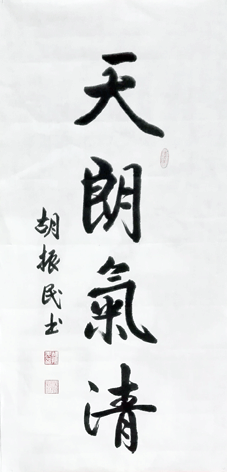 天朗氣清
胡振民书